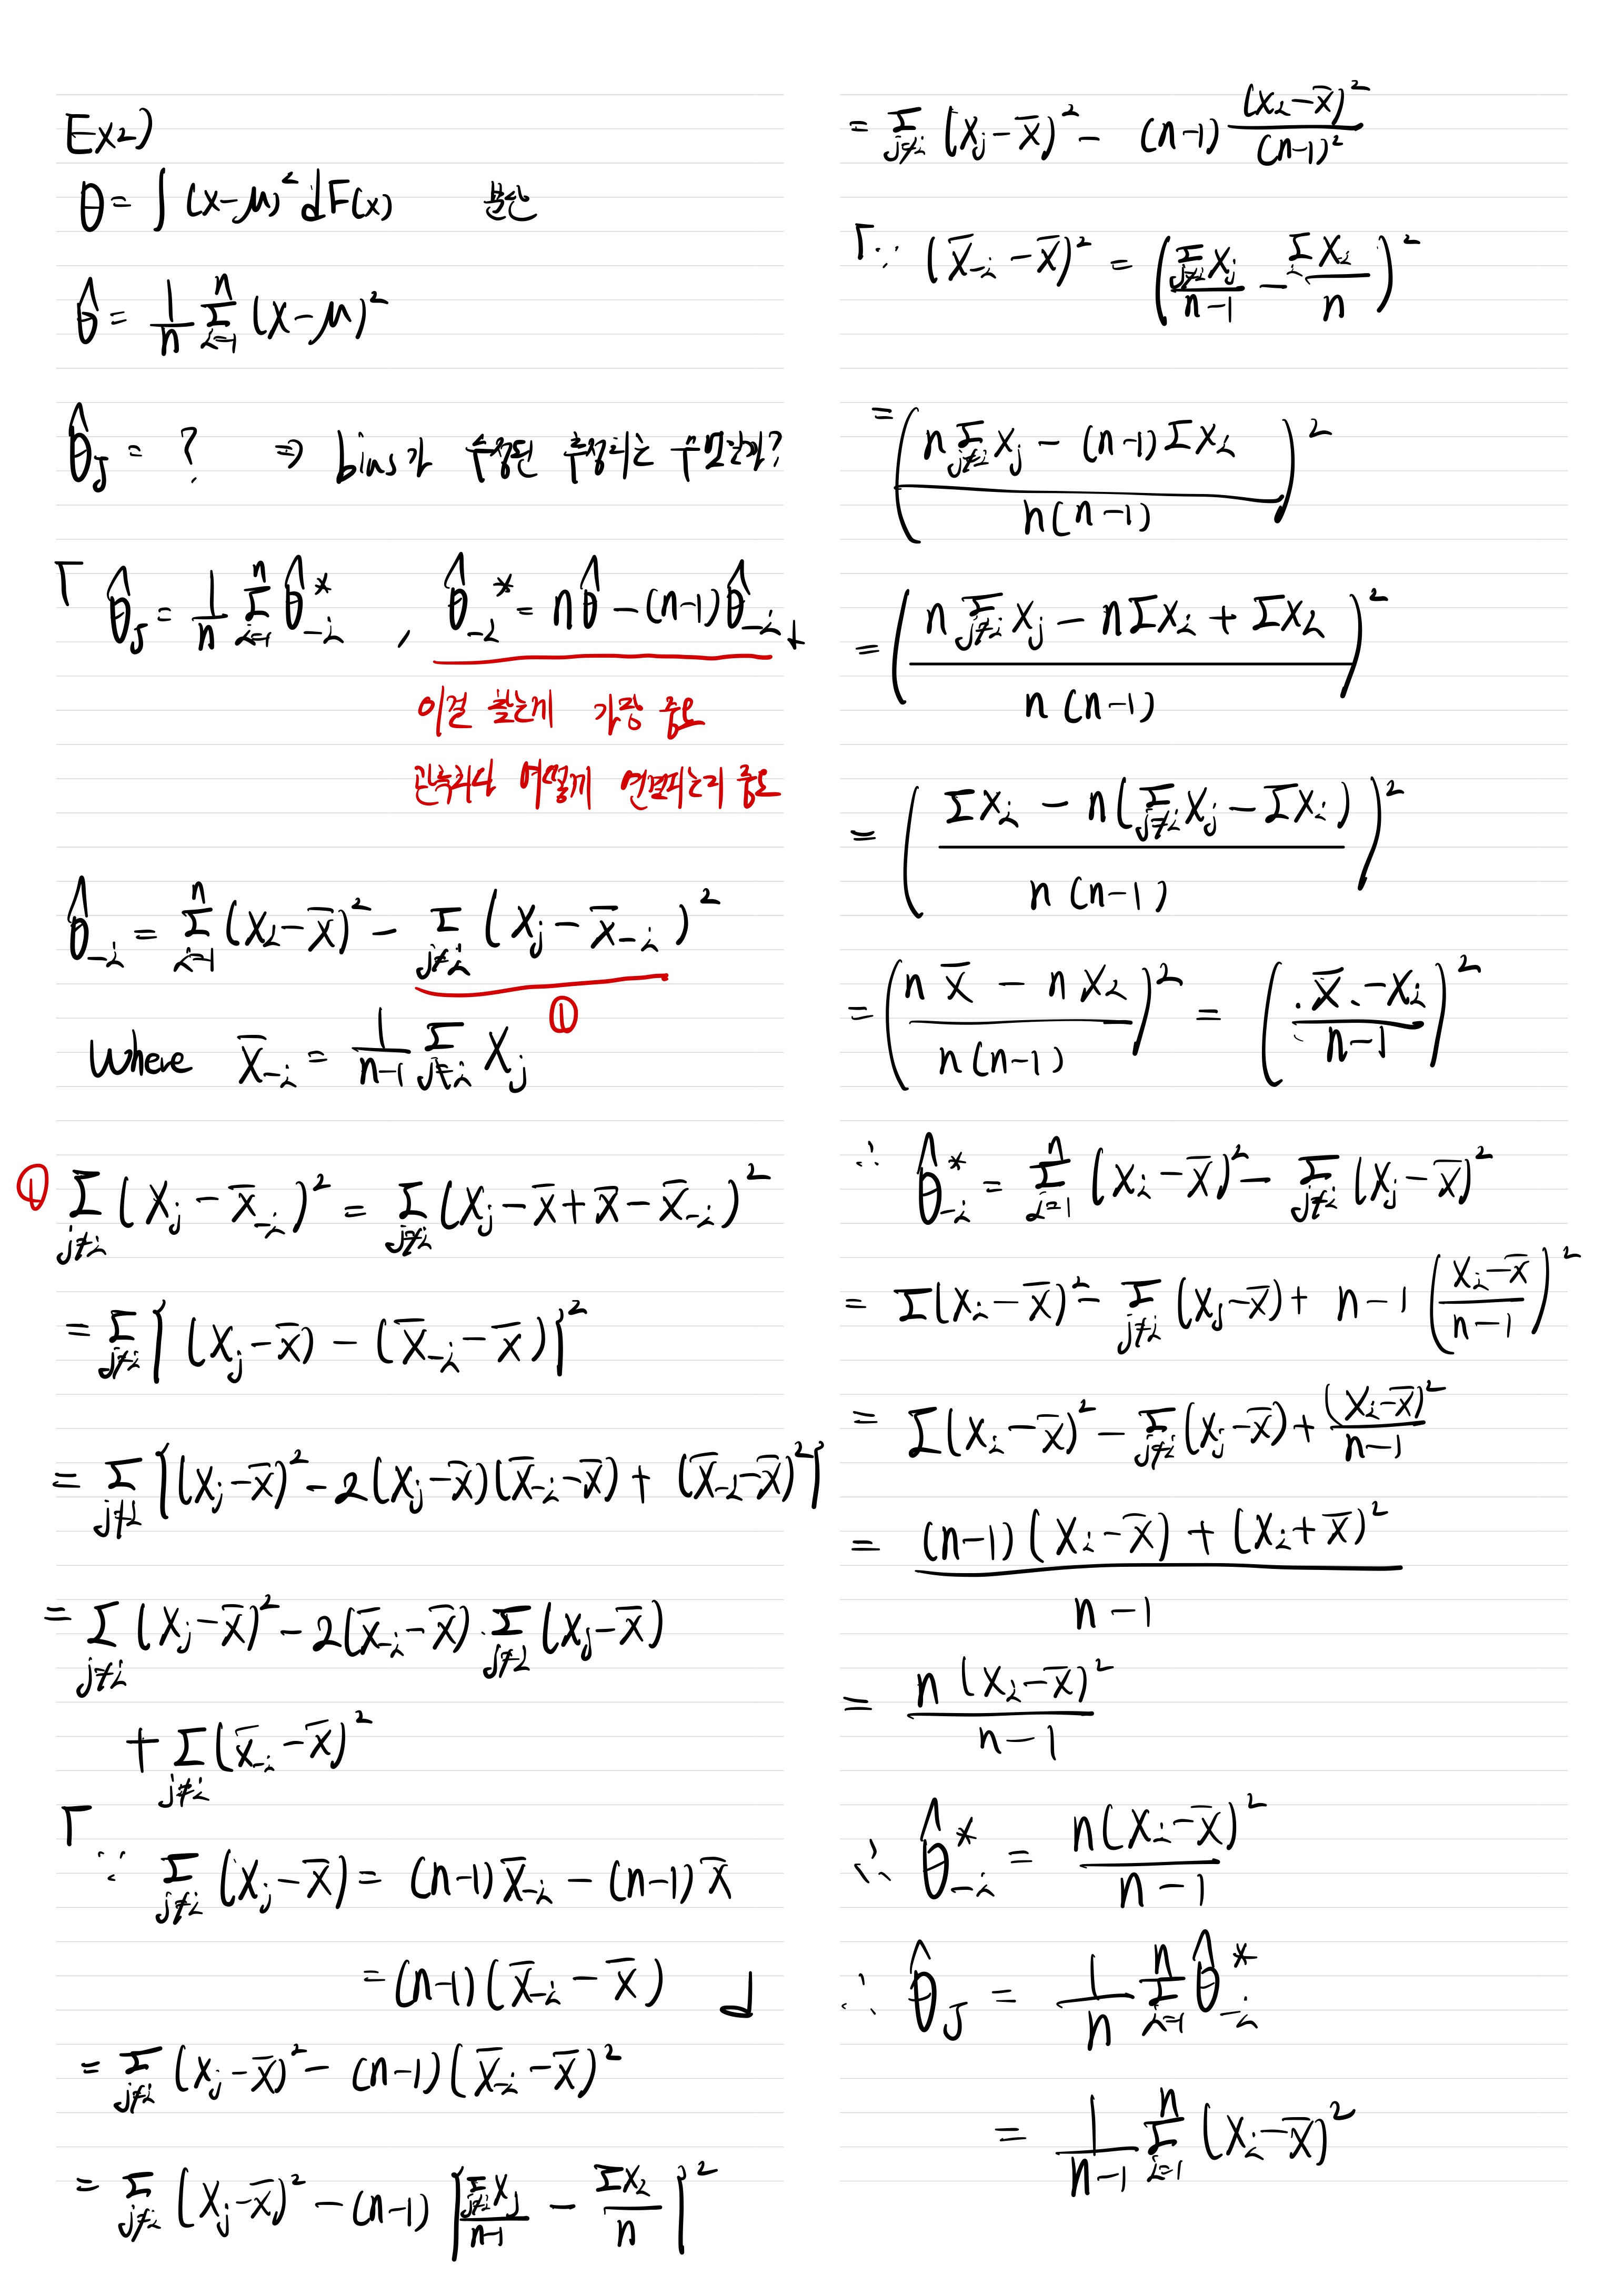 Ex2)
θ = ∫ (x-μ)² dF(x) 분산
θ̂ = 1/n Σ_{i=1}^{n} (x-μ)²
θ̂_J = ? ⇒ bias가 수정된 추정되는 무엇인가?
「 θ̂_J = 1/n Σ_{i=1}^{n} θ̂*_{-i} , θ̂*_{-i} = nθ̂ - (n-1)θ̂_{-i} 」
이걸 찾는게 가장 중요
관측치와 어떻게 연결되는지 중요
θ̂_{-i} = Σ_{i=1}^{n} (X_i - X̄)² - Σ_{j≠i} (X_j - X̄_{-i})²
①
where X̄_{-i} = 1/(n-1) Σ_{j≠i} X_j
① Σ_{j≠i} (X_j - X̄_{-i})² = Σ_{j≠i} (X_j - X̄ + X̄ - X̄_{-i})²
= Σ_{j≠i} { (X_j - X̄) - (X̄_{-i} - X̄) }²
= Σ_{j≠i} { (X_j - X̄)² - 2(X_j - X̄)(X̄_{-i} - X̄) + (X̄_{-i} - X̄)² }
= Σ_{j≠i} (X_j - X̄)² - 2(X̄_{-i} - X̄) · Σ_{j≠i} (X_j - X̄)
+ Σ_{j≠i} (X̄_{-i} - X̄)²
「 ∵ Σ_{j≠i} (X_j - X̄) = (n-1)X̄_{-i} - (n-1)X̄
= (n-1)(X̄_{-i} - X̄) 」
= Σ_{j≠i} (X_j - X̄)² - (n-1)(X̄_{-i} - X̄)²
= Σ_{j≠i} (X_j - X̄)² - (n-1) { Σ_{j≠i} X_j / (n-1) - ΣX_i / n }²
= Σ_{j≠i} (X_j - X̄)² - (n-1) (X_i - X̄)² / (n-1)²
「 ∵ (X̄_{-i} - X̄)² = ( Σ_{j≠i} X_j / (n-1) - Σ_i X_i / n )²
= ( (n Σ_{j≠i} X_j - (n-1)ΣX_i) / n(n-1) )²
= ( (n Σ_{j≠i} X_j - nΣX_i + ΣX_i) / n(n-1) )²
= ( (ΣX_i - n(Σ_{j≠i} X_j - ΣX_i)) / n(n-1) )²
= ( (nX̄ - nX_i) / n(n-1) )² = ( (X̄ - X_i) / (n-1) )²
∴ θ̂*_{-i} = Σ_{i=1}^{n} (X_i - X̄)² - Σ_{j≠i} (X_j - X̄)²
= Σ(X_i - X̄)² - Σ_{j≠i} (X_j - X̄) + n-1 ( (X_i - X̄) / (n-1) )²
= Σ(X_i - X̄)² - Σ_{j≠i} (X_j - X̄) + (X_i - X̄)² / (n-1)
= ( (n-1)(X_i - X̄) + (X_i + X̄)² ) / (n-1)
= n(X_i - X̄)² / (n-1)
∴ θ̂*_{-i} = n(X_i - X̄)² / (n-1)
∴ θ̂_J = 1/n Σ_{i=1}^{n} θ̂*_{-i}
= 1/(n-1) Σ_{i=1}^{n} (X_i - X̄)²